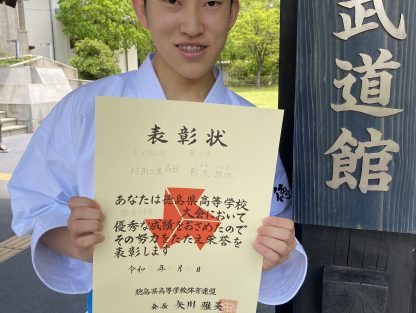 武道館
表彰状
あなたは徳島県高等学校
大会において
優秀な成績をおさめたので
その努力をたたえ栄誉を
表彰します
令和 年 月 日
徳島県高等学校体育連盟
会長 矢川 雅英